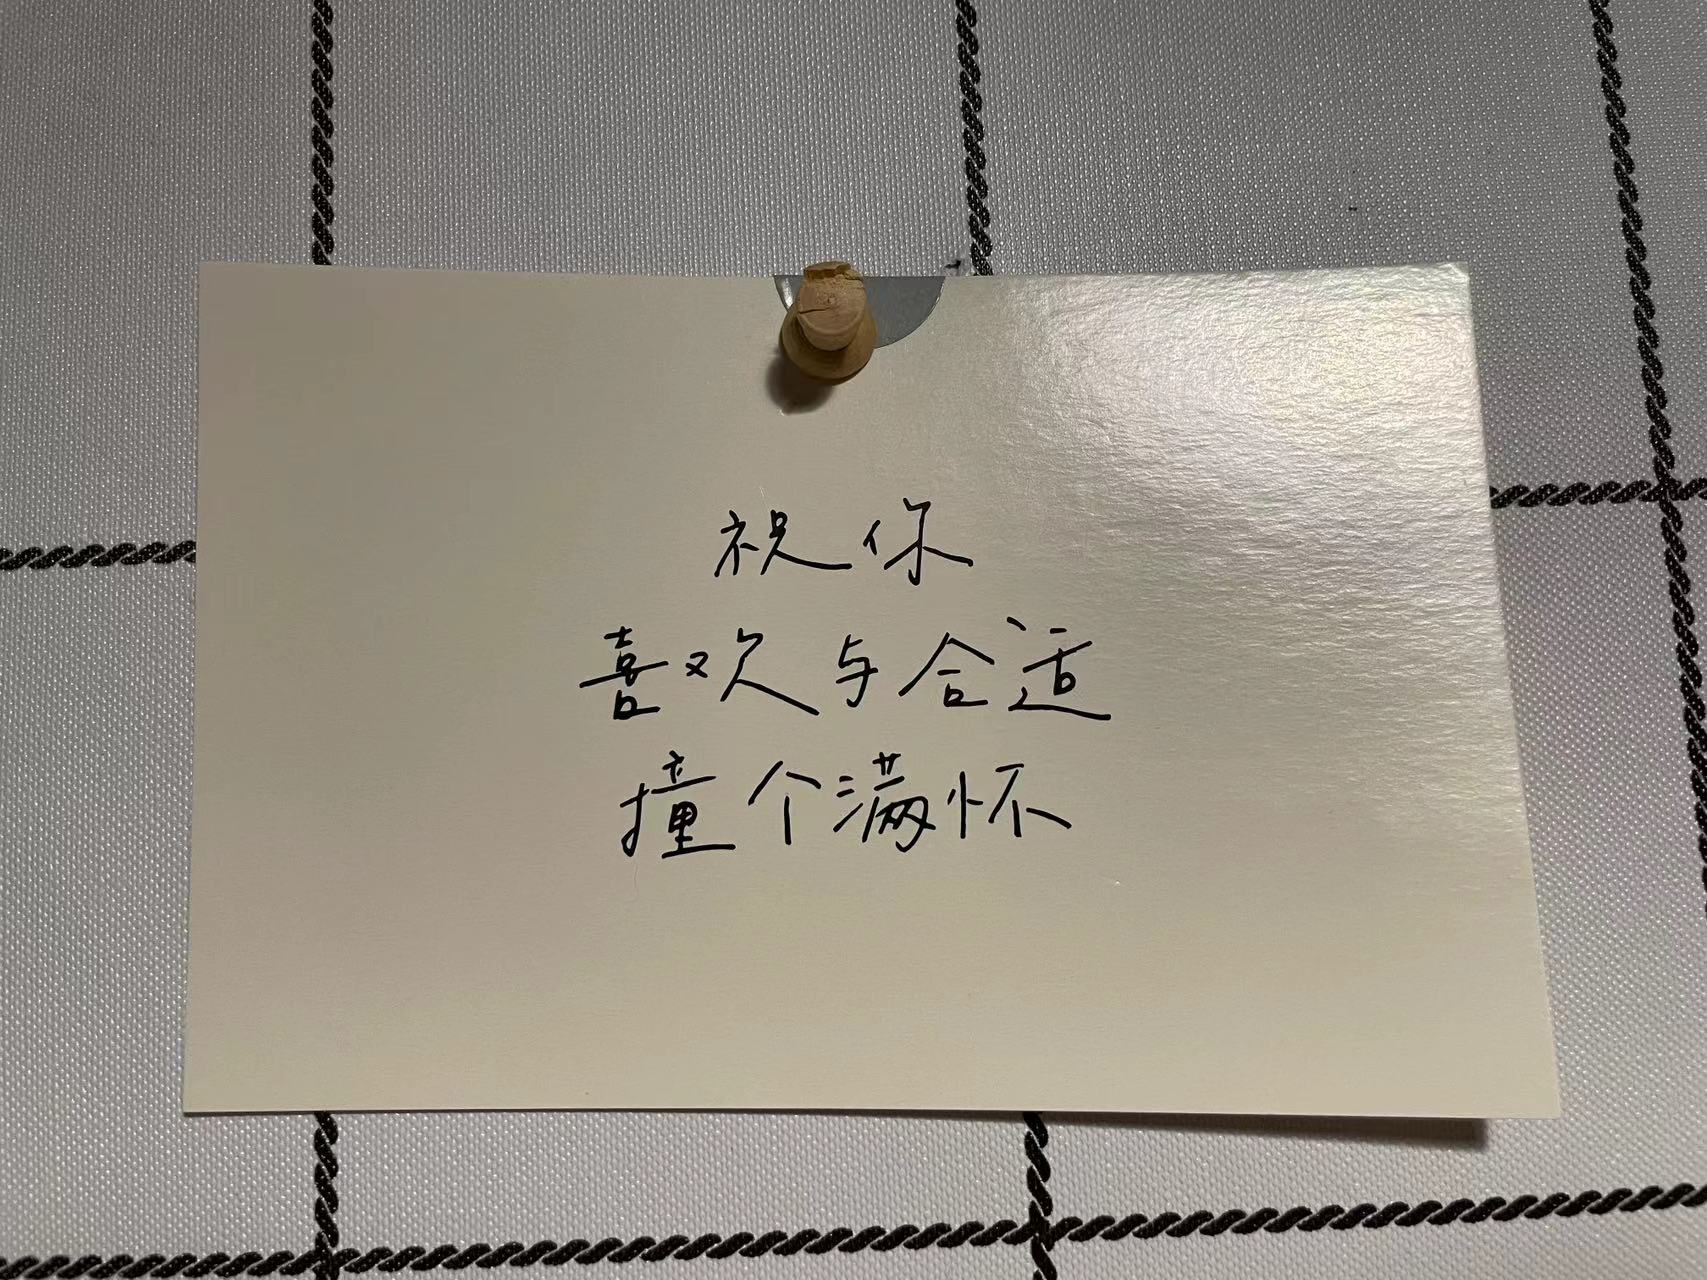 祝你
喜欢与合适
撞个满怀